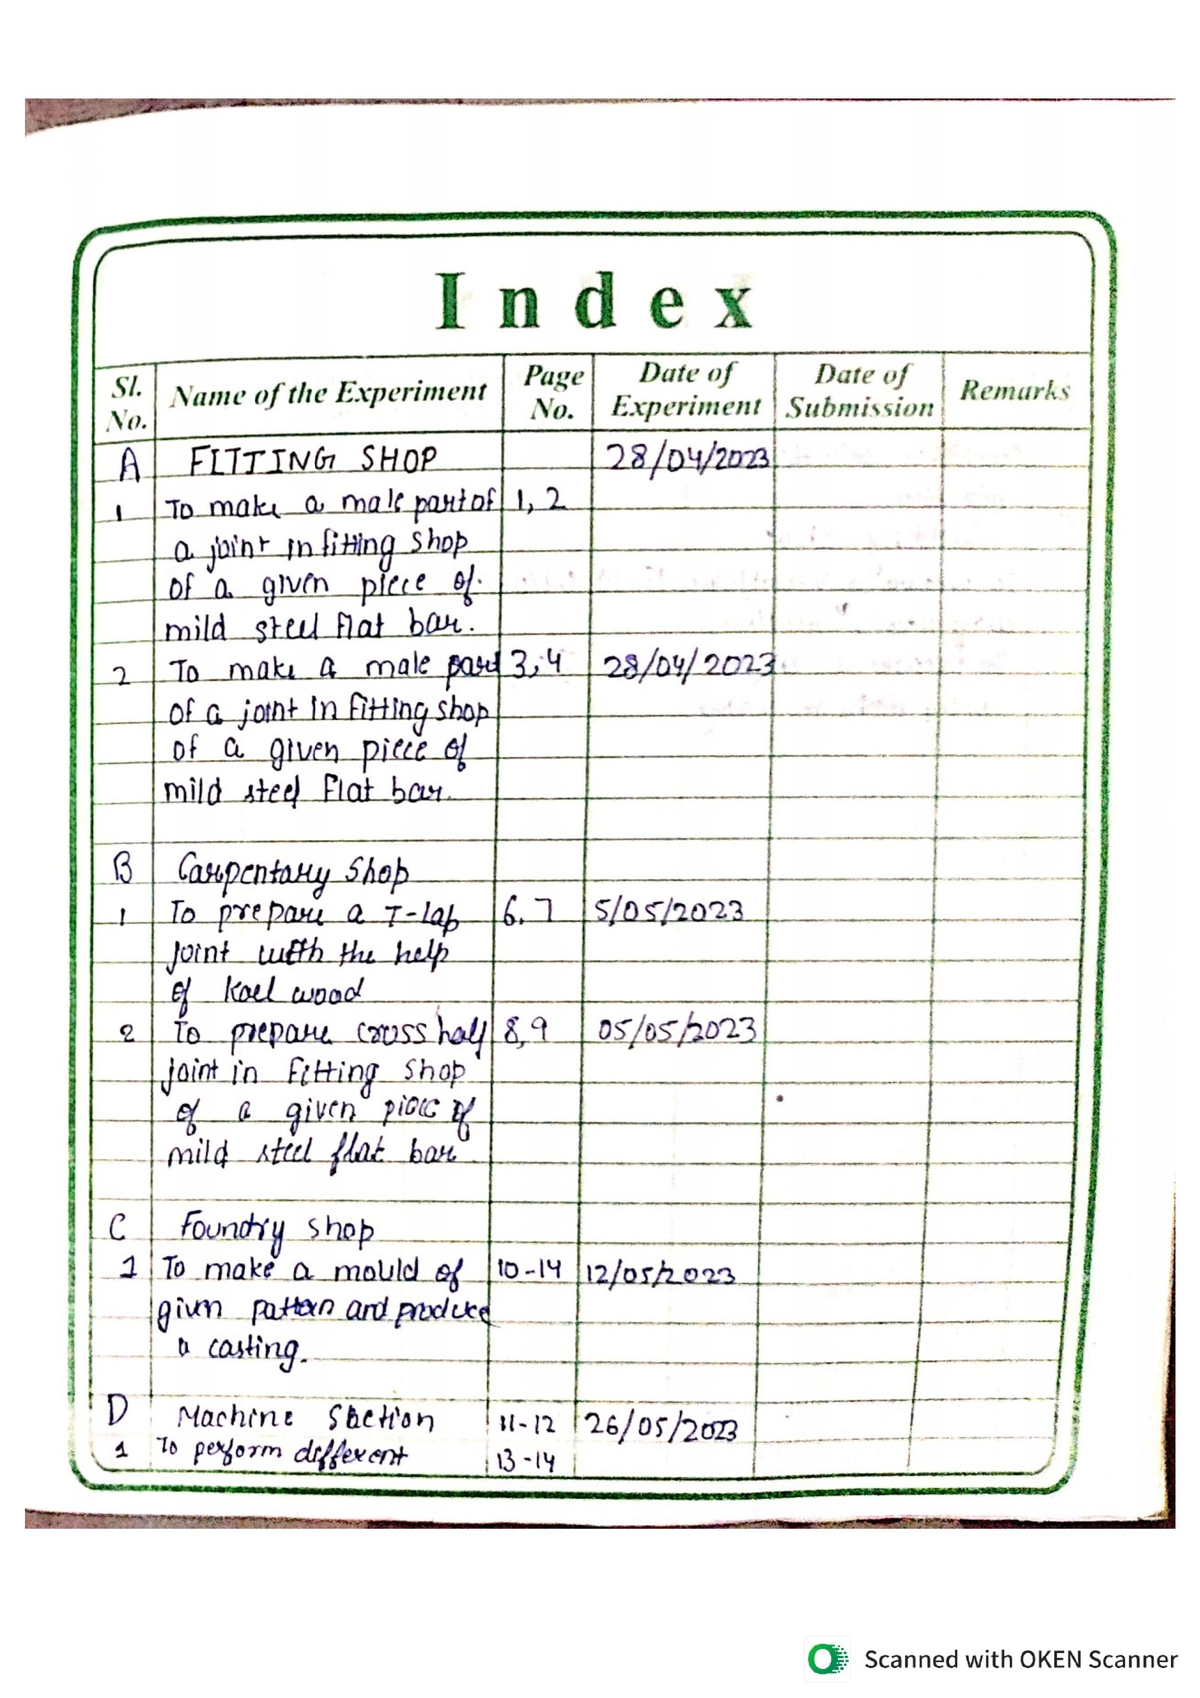 Index
Sl. No. Name of the Experiment Page No. Date of Experiment Date of Submission Remarks
A FITTING SHOP 28/04/2023
1 To make a male part of 1, 2
a joint in fitting shop
of a given piece of
mild steel flat bar.
2 To make a male part 3,4 28/04/2023
of a joint in fitting shop
of a given piece of
mild steel flat bar.
B Carpentary Shop
1 To prepare a T-lap 6,7 5/05/2023
joint with the help
of Kael wood
2 To prepare cross half 8,9 05/05/2023
joint in fitting shop
of a given piece of
mild steel flat bar
C Foundry shop
1 To make a mould of 10-14 12/05/2023
given pattern and produce
a casting.
D Machine Section 11-12 26/05/2023
1 To perform different 13-14
Scanned with OKEN Scanner